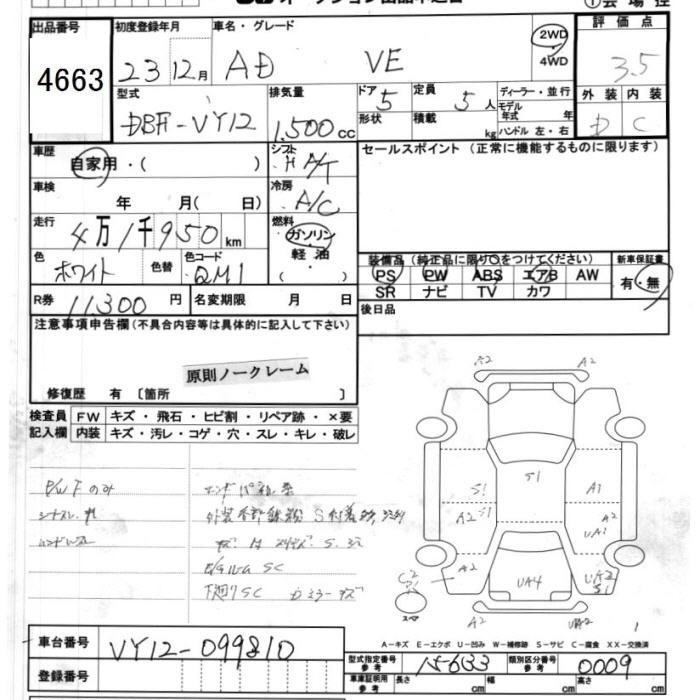 出品番号 初度登録年月 車名・グレード 評価点
4663 23 12月 AD VE 2WD 4WD 3.5
型式 排気量 ドア 定員 ディーラー・並行 外装 内装
DBF-VY12 1,500cc 5 5人 モデル年式 年 D C
形状 積載 kg ハンドル 左・右
車歴 シフト セールスポイント(正常に機能するものに限ります)
自家用・( ) A/T
車検 冷房
年 月( 日) A/C
走行 燃料
4万1千950km ガソリン
色 色替 色コード 軽油 装備品(純正品に限り○をつけてください) 新車保証書
ホワイト QM1 ( ) PS PW ABS エアB AW 有・無
SR ナビ TV カワ
R券 11,300円 名変期限 月 日 後日品
注意事項申告欄(不具合内容等は具体的に記入して下さい)
原則ノークレーム
修復歴 有〔箇所 〕
検査員 FW キズ・飛石・ヒビ割・リペア跡・×要
記入欄 内装 キズ・汚レ・コゲ・穴・スレ・キレ・破レ
A2 A2
S1
S1 A1
A2 S1 A2
UA1
P/W Fのみ
下廻りSC
A2 UA4 UA2
C2 S1
スペア
A2 UA2
A-キズ E-エクボ U-凹み W-補修跡 S-サビ C-腐食 XX-交換済
車台番号 VY12-099810
型式指定番号 参考 15633 類別区分番号 参考 0009
登録番号 車庫証明用 参考 長さ cm 幅 cm 高さ cm